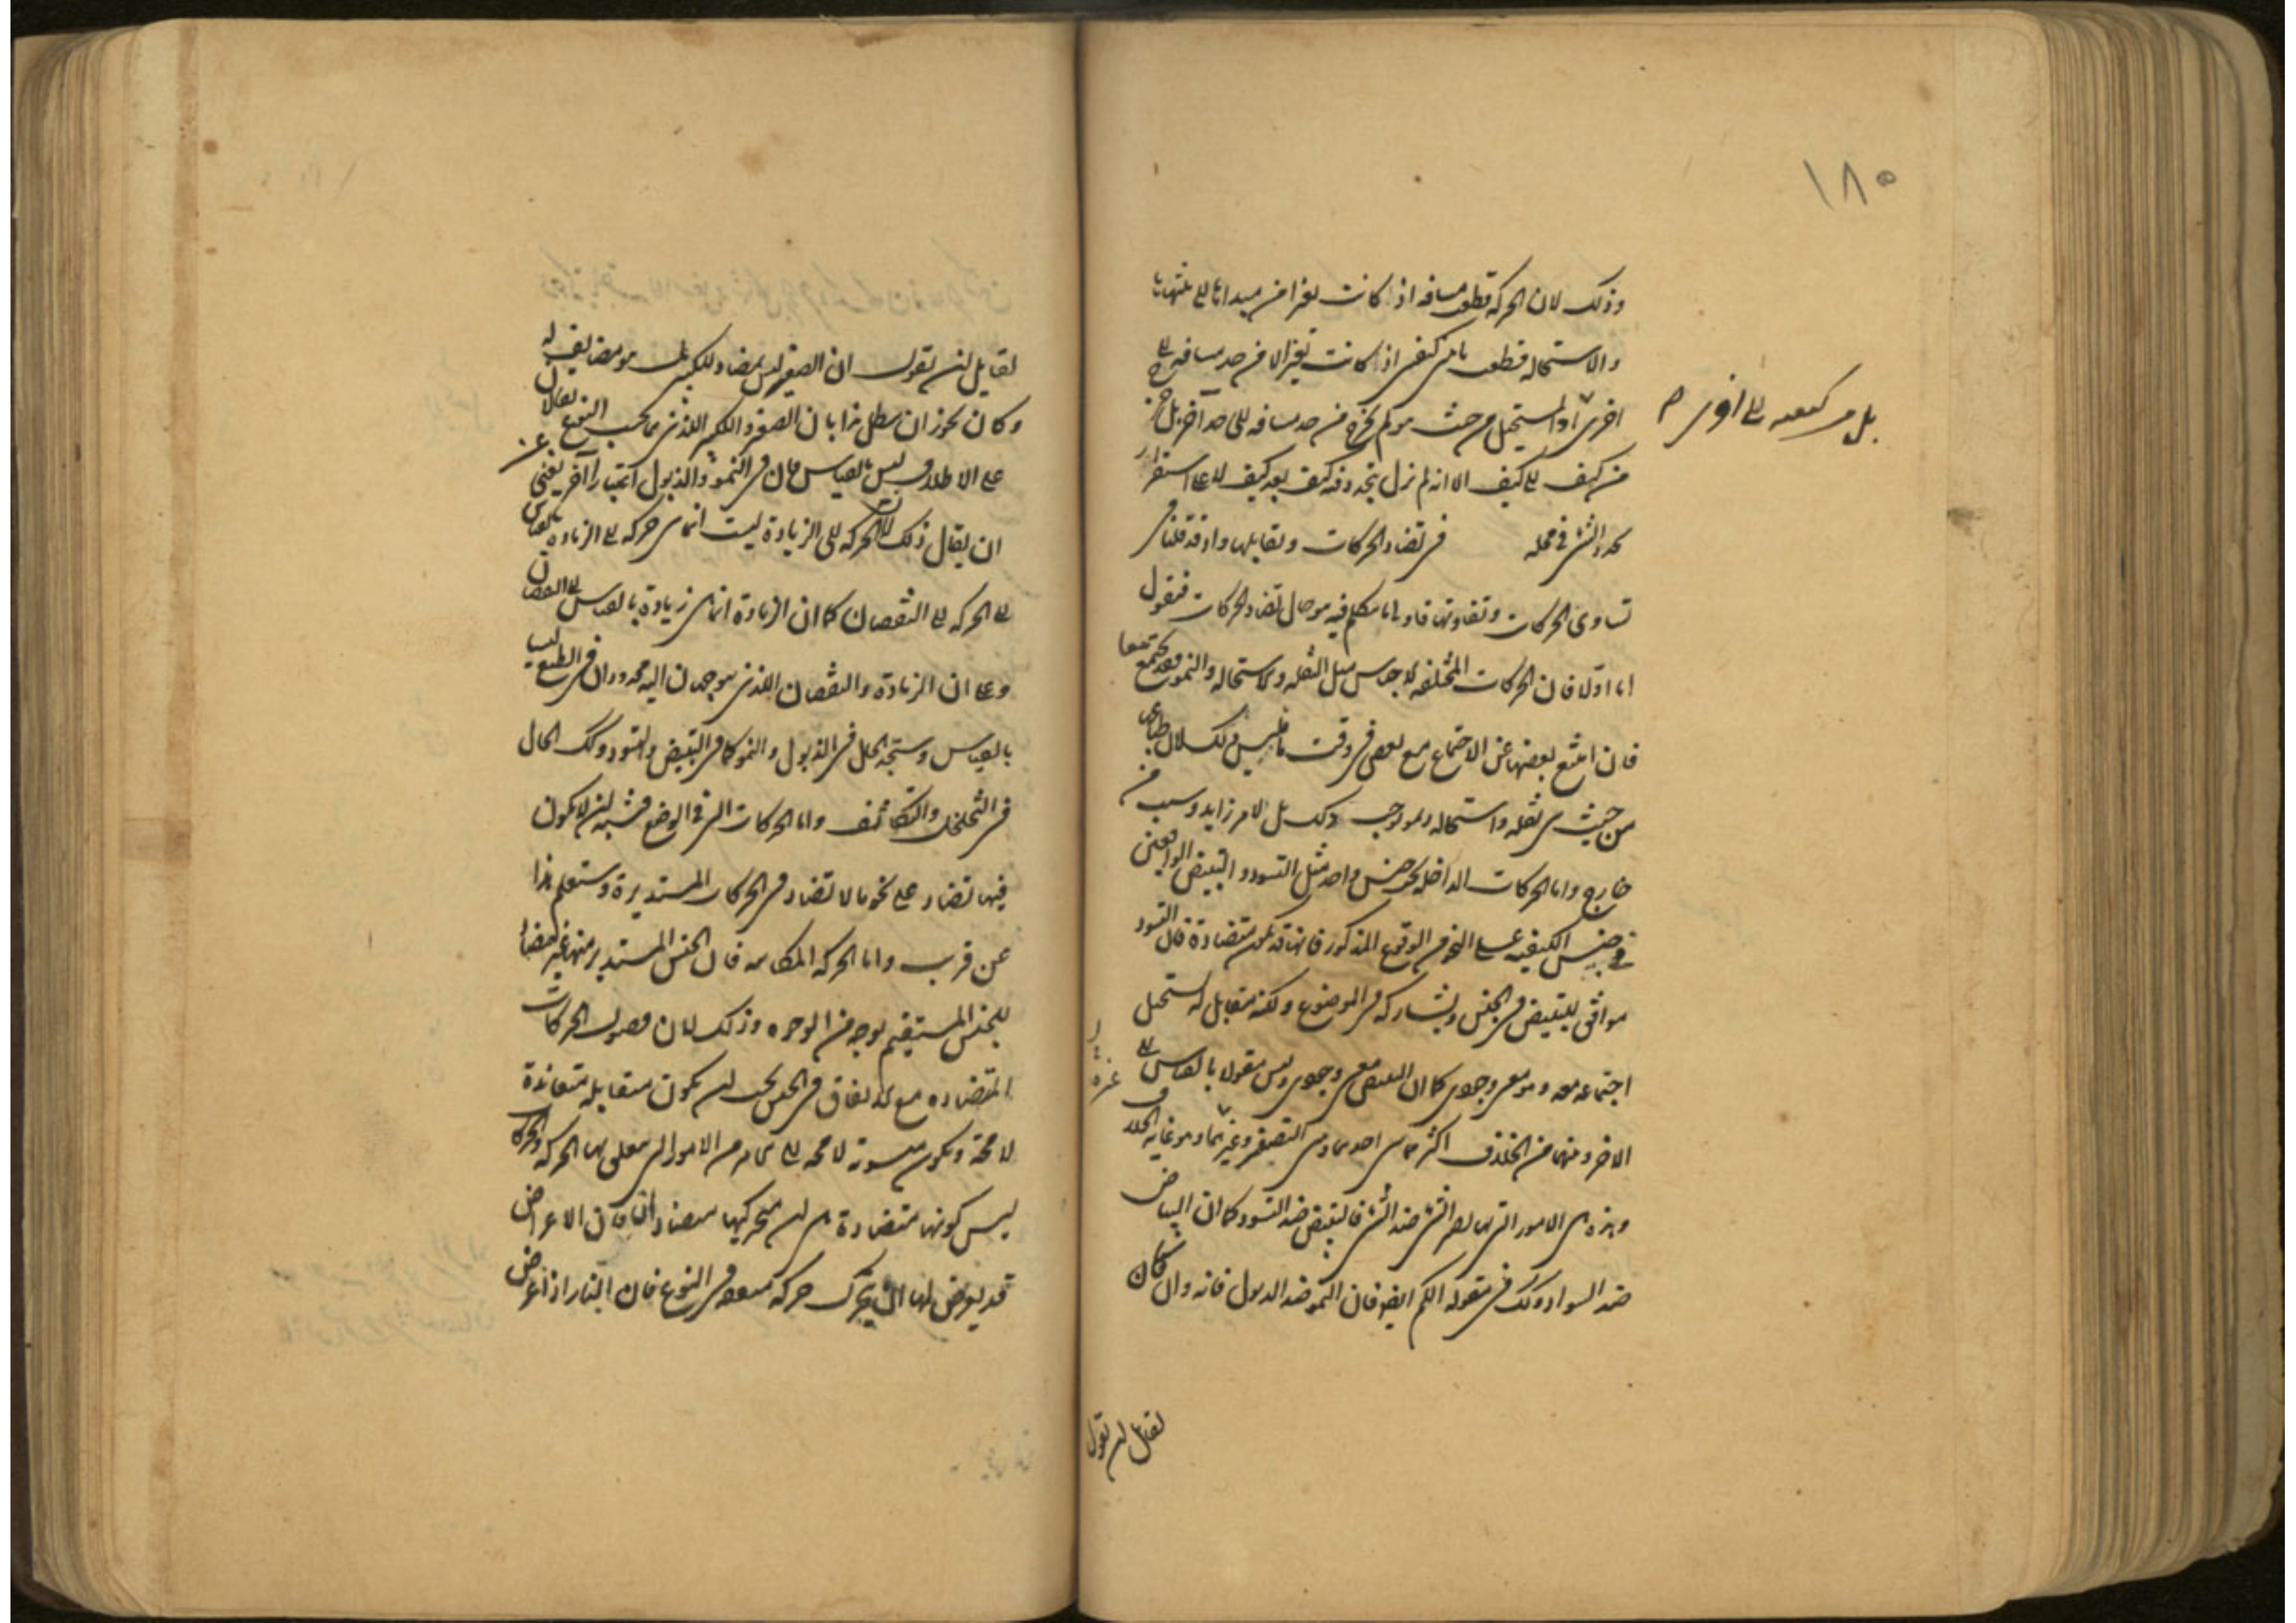 ١٨٥
وذلك لان الحركة قطع مسافة اذا كانت تغيرا من مبدائها الى منتهاها
والاستحالة قطع ما في كيف اذا كانت تغيرا لا من حد مسافة الى
اخرى اذ المستحيل من حيث هو لم يخرج من حد مسافة الى حد آخر بل
بل من كيفيه الى اخرى
من كيف الى كيف الا انه لم تزل يتجدد فيه كيف بعد كيف لا على استقرار
في محله في تضاد الحركات وتقابلها واذ قد قلنا في
تساوى الحركات وتفاوتها فاولى ما نتكلم فيه هو حال تضاد الحركات فنقول
اما اولا فان الحركات المختلفة الاجناس مثل النقله والاستحاله والنمو فقد تجتمع معا
فان امتنع بعضها عن الاجتماع مع بعض في وقت ما فليس ذلك لان طباعها
من حيث هي نقله واستحاله ونمو توجب ذلك بل لامر زايد وسبب من
خارج واما الحركات الداخله تحت جنس واحد مثل التسود والتبيض الواقعين
في جنس الكيفيه على النحو من الوقوع المذكور فانها قد تكون متضادة فان التسود
موافق للتبيض في الجنس ويشاركه في الموضوع ولكنه مقابل له يستحيل
اجتماعه معه وهو معنى وجودى كما ان التبيض معنى وجودى وليس مقولا بالقياس الى
الاخر وبينهما من الخلاف اكثر مما بين احدهما وبين التصفر وغيرهما وهو غاية الخلاف
وهذه هى الامور التى بها يصير الشى ضد الشى فالتبيض ضد التسود كما ان البياض
ضد السواد وكذلك في مقوله الكم ايضا فان النمو ضد الذبول فانه وان كان
لقايل ان يقول
لقايل ان يقول ان الصغير ليس بمضاد للكبير بل هو مضايف له
وكان يجوز ان يبطل هذا بان الصغير والكبير اللذين هما بحسب النوع يقالان
على الاطلاق ليس بالقياس فان في النمو والذبول اعتبارا آخر يغنى عن
ان يقال ذلك لان الحركه الى الزيادة ليست انما هى حركه الى الزيادة بالقياس
الى الحركه الى النقصان كما ان الزيادة انما هى زيادة بالقياس الى النقصان
وعلى ان الزيادة والنقصان اللذين يتوجهان اليه محدودان في الطبع ليسا
بالقياس وستجد الحال في الذبول والنمو كما في التبيض والتسود وكذلك الحال
في التخلخل والتكاثف واما الحركات التى في الوضع فيشبه ان لا يكون
فيها تضاد على نحو ما لا تضاد في الحركات المستديرة وستعلم هذا
عن قرب واما الحركه المكانيه فان الجنس المستدير منها غير مضاد
للجنس المستقيم بوجه من الوجوه وذلك لان فصول الحركات
المتضاده مع الاتفاق في الجنس يجب ان يكون متقابله متعاندة
لا محة ويكون منسوبه لا محه الى شى من الامور التى يتعلق بها الحركه والحركات
ليس كونها متضادة هى ان متحركيها متضادان فان الاعراض
قد يعرض لها ان يتحرك حركه متفقه في النوع فان النار اذا عرض